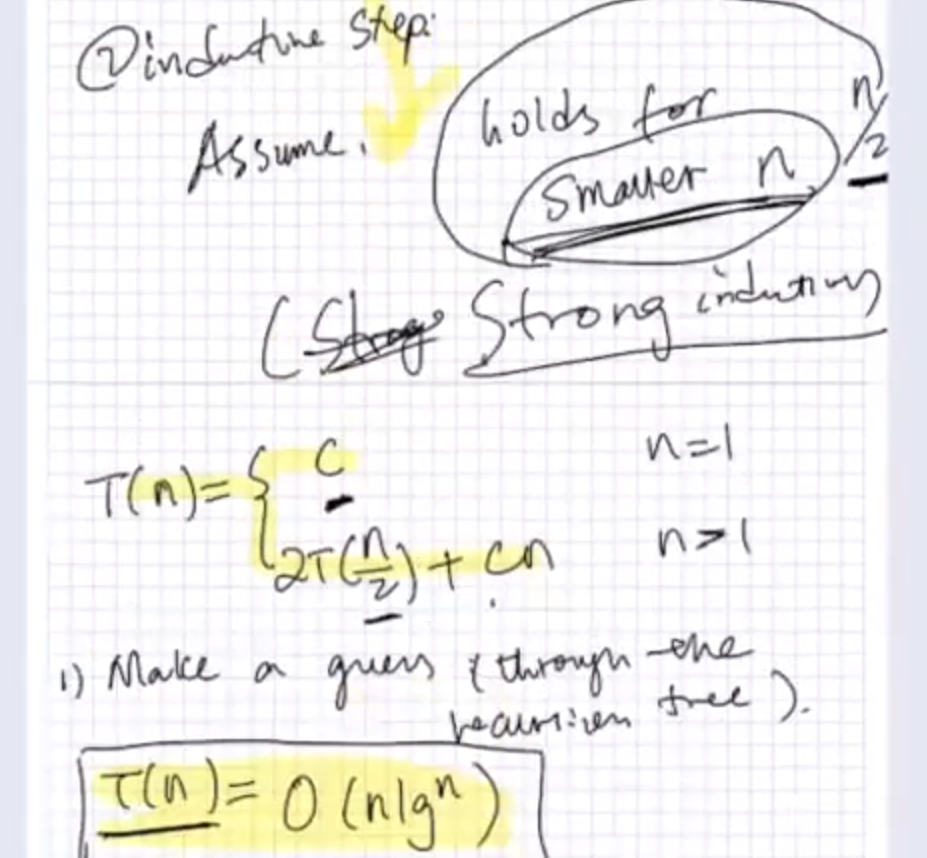 ② inductive step:
Assume. holds for n/2
smaller n
(Strong Strong induction
T(n) = { c n=1
2T(n/2) + cn n>1
1) Make a guess (through the
recursion tree).
T(n) = O(nlgn)